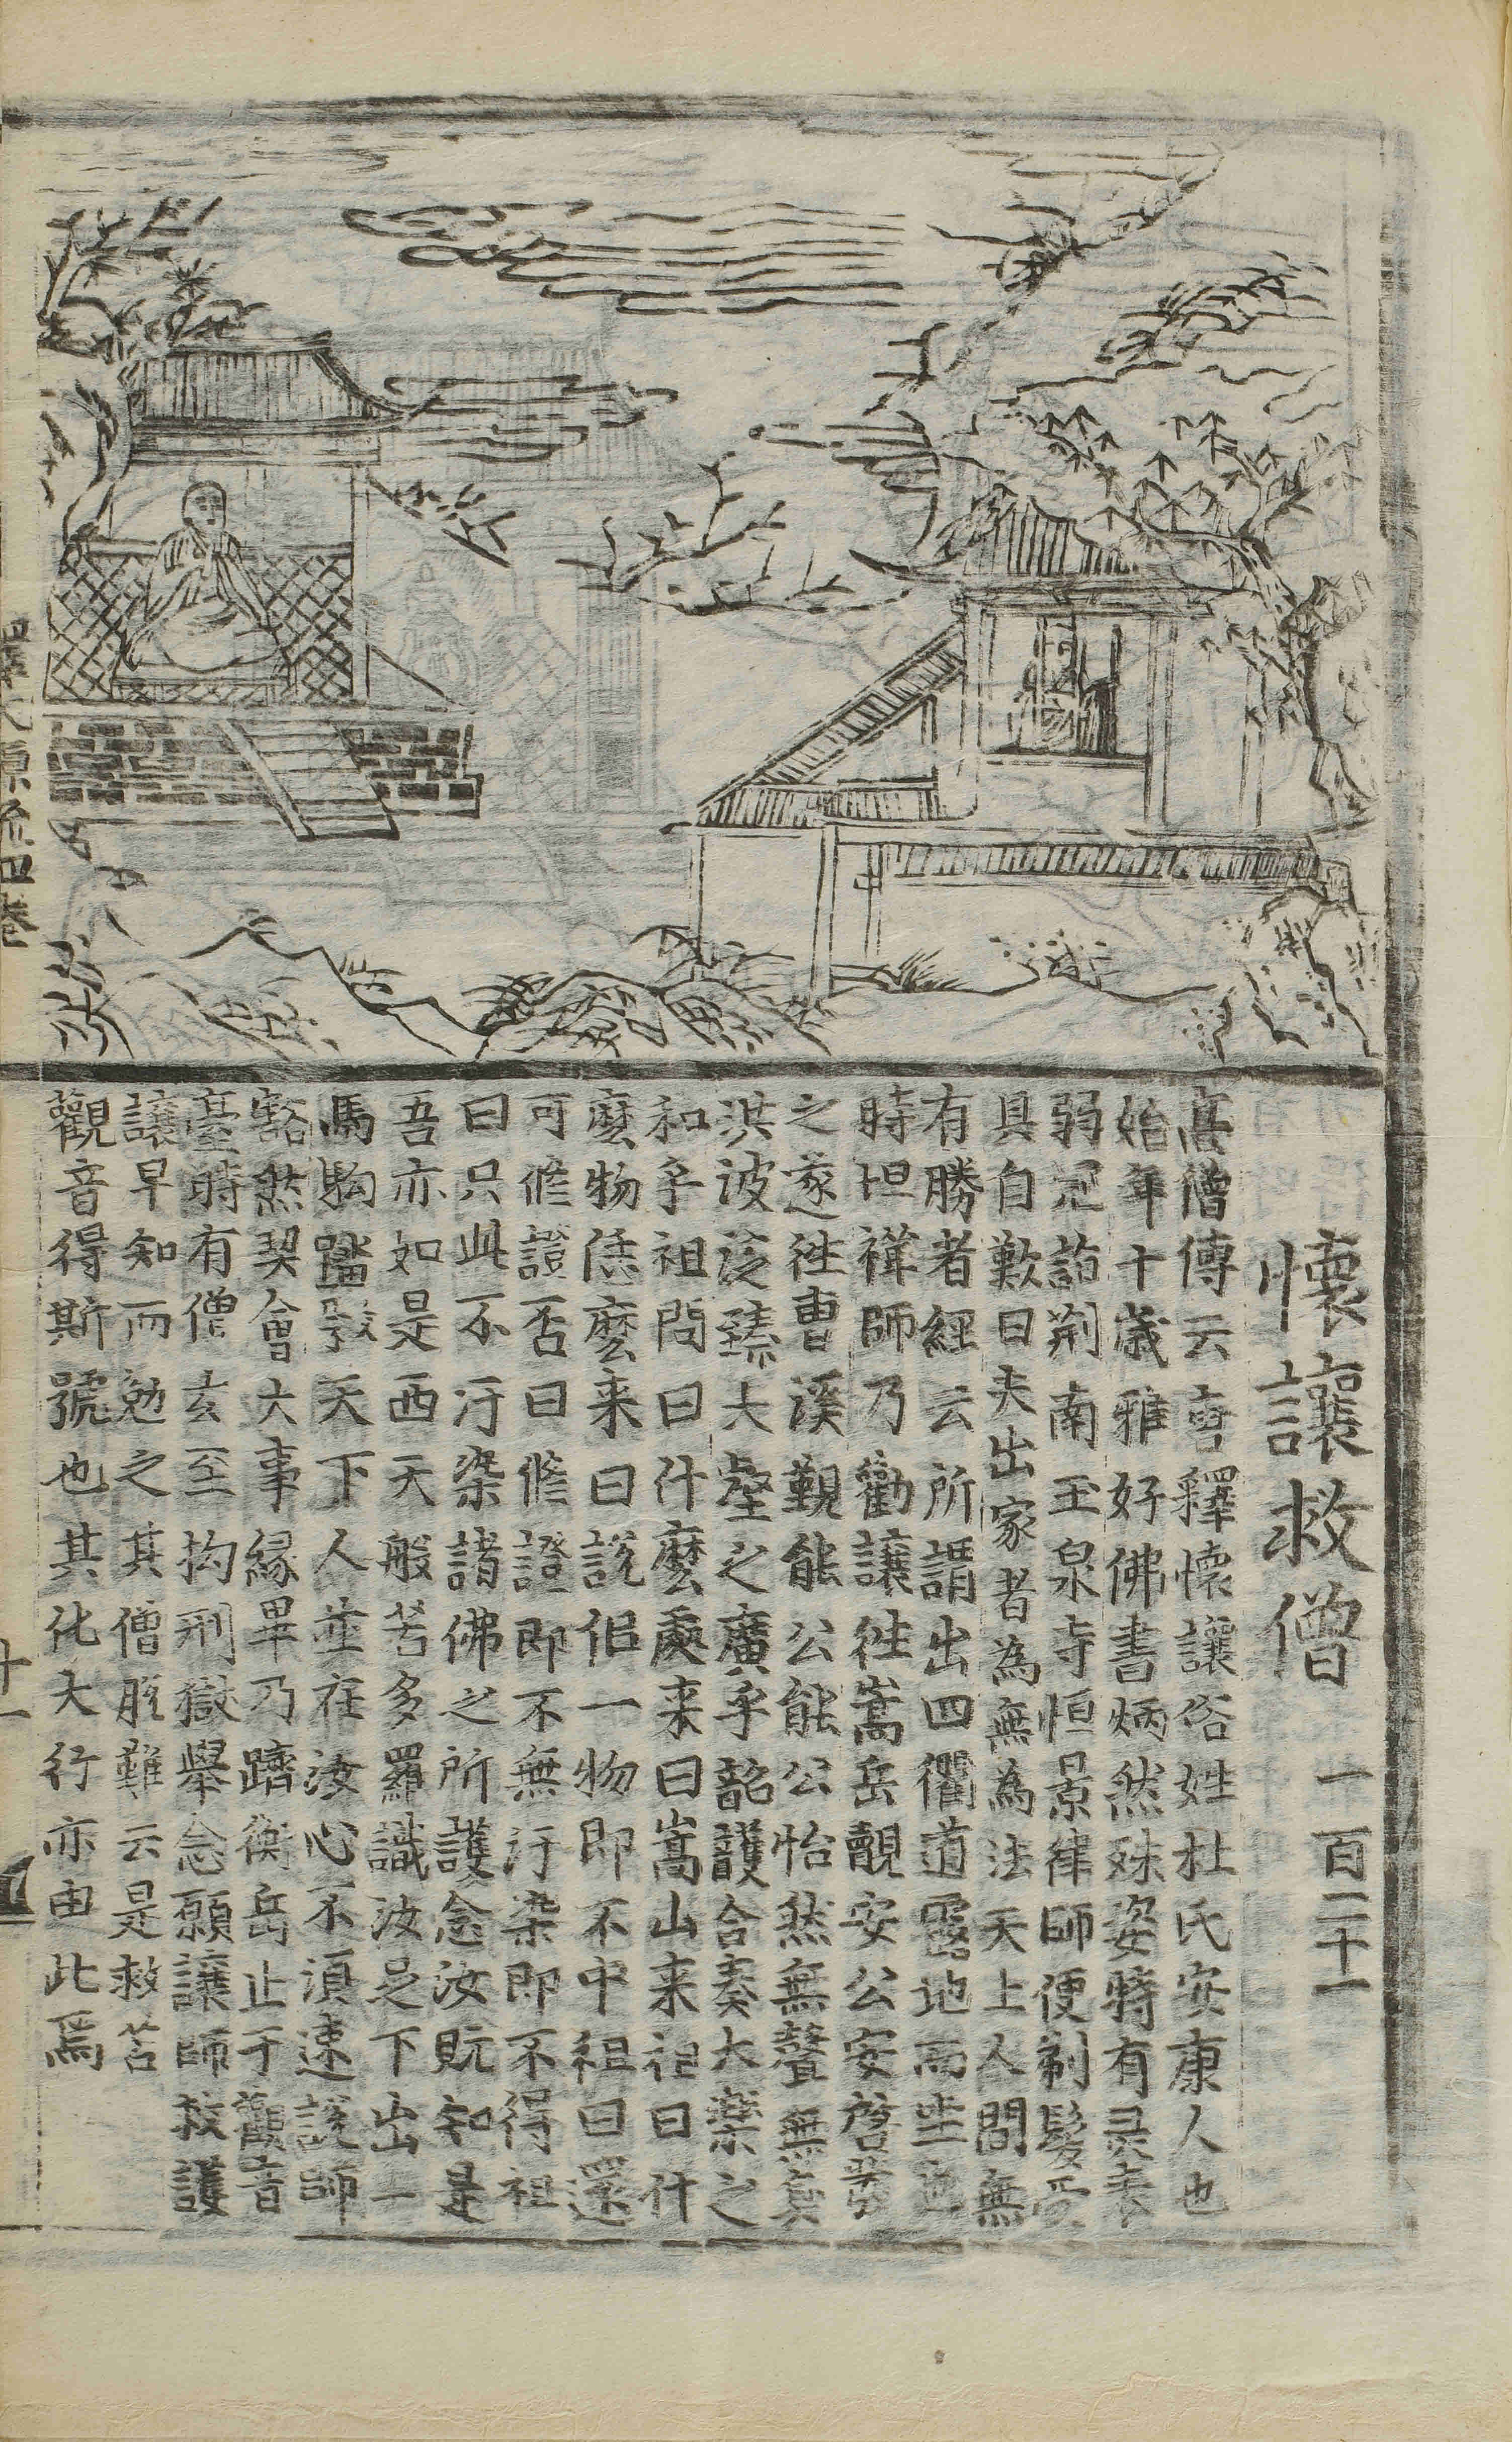 懷讓救僧 一百二十一
高僧傳云唐釋懷讓俗姓杜氏安康人也
始年十歲雅好佛書炳然殊姿特有灵表
弱冠詣荆南玉泉寺恒景律師便剃髮受
具自歎曰夫出家者為無為法天上人間無
有勝者經云所謂出四衢道露地而坐也
時坦禅師乃勸讓往嵩岳覿安公安啓發
之遂往曹溪覲能公能公怡然無聲無臭
洪波泛臻大壑之廣乎韶護合奏大樂之
和乎祖問曰什麽處来曰嵩山来祖曰什
麽物恁麽来曰説侣一物即不中祖曰還
可修證否曰修證即不無汙染即不得祖
曰只此不汙染諸佛之所護念汝既知是
吾亦如是西天般若多羅識汝足下出一
馬駒踏殺天下人並在汝心不須速説師
豁然契會大事縁畢乃躋衡岳止于觀音
臺時有僧玄至拘刑獄舉念願讓師救護
讓早知而勉之其僧脱難云是救苦
觀音得斯號也其化大行亦由此焉
釋氏源流四卷
十一